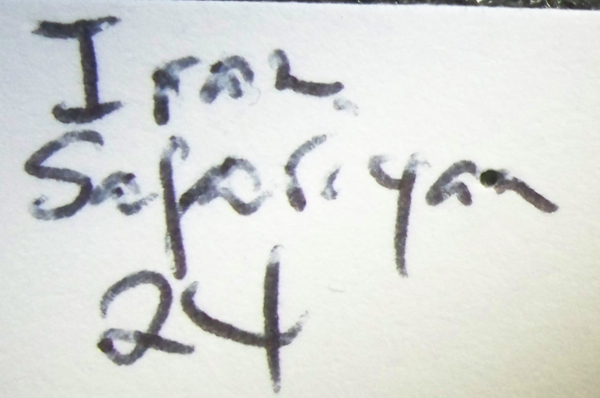 Iran
Safariyan
24